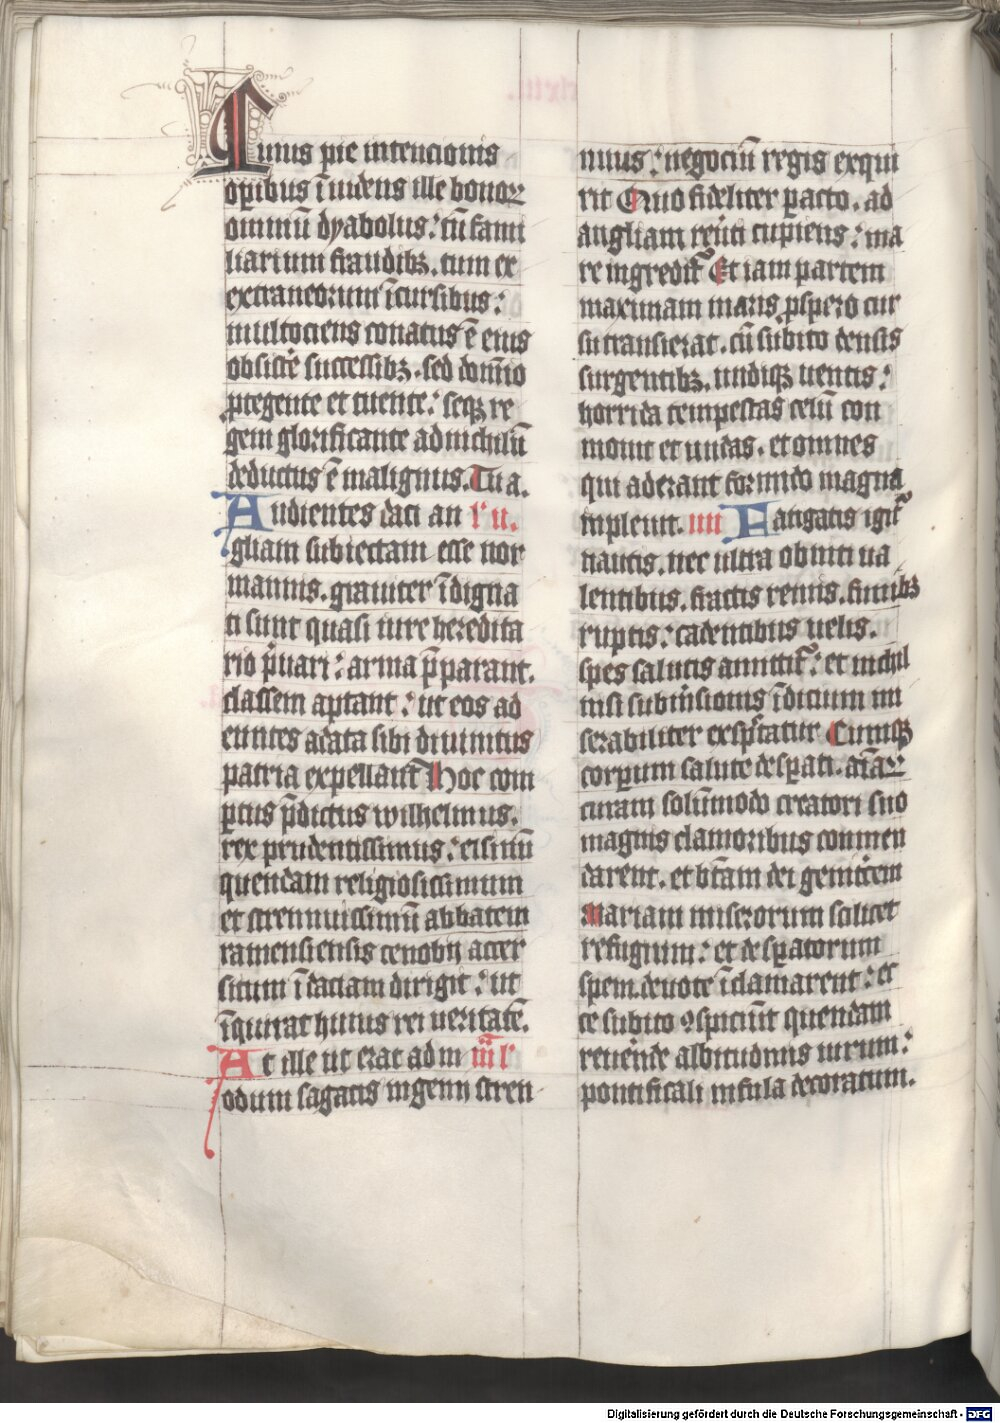 Cuius pie intencionis
opibus īuidens ille bonoꝝ
omniū dyabolus: cū fami
liarium fraudibꝫ. tum ex
extraneorum īcursibus:
multociens conatus ē eius
obsistẽ successibꝫ. sed domīo
ꝓtegente et tuente: seqꝫ re
gem glorificante ad nichilū
deductus ē malignus. Tu a.
Audientes daci an l'ii.
gliam subiectam esse nor
mannis. grauiter īdigna
ti sunt quasi iure heredita
rio p̄uari: arma p̄parant.
classem aptant: ut eos ad
euntes a data sibi diuinitus
patria expellant Hoc com
ꝑtus p̄dictus wilhelmus.
rex prudentissimus: elsinū
quendam religiosissimum
et strennuissimū abbatem
ramensiensis cenobij accer
situm ī daciam dirigit: ut
īquirat huius rei ueritatē.
At ille ut erat ad m iii l'
odum sagacis ingenij stren
nuus: negociū regis exqui
rit Quo fideliter ꝑacto. ad
angliam reūti cupiens: ma
re ingredit᷑ Et iam partem
maximam maris ꝓspero cur
su transierat. cū subito densis
surgentibꝫ. undiqꝫ uentis:
horrida tempestas celū con
mouit et undas. et omnes
qui aderant formido magna
impleuit. iiii Fatigatis igit᷑
nautis. nec ultra obniti ua
lentibus. fractis remis. funibꝫ
ruptis: cadentibus uelis.
spes salutis amittit᷑: et nichil
nisi submersionis īdicium mi
serabiliter exspctatur Cumqꝫ
corporum salute desꝑati. aīaꝝ
curam solūmodo creatori suo
magnis clamoribus conmen
darent. et btām dei genitcem
Mariam miserorum scilicet
refugium: et desꝑatorum
spem. deuote īclamarent: ec
ce subito ꝯspiciūt quendam
reuēnde albitudinis uirum:
pontificali infula decoratum.
Digitalisierung gefördert durch die Deutsche Forschungsgemeinschaft - DFG